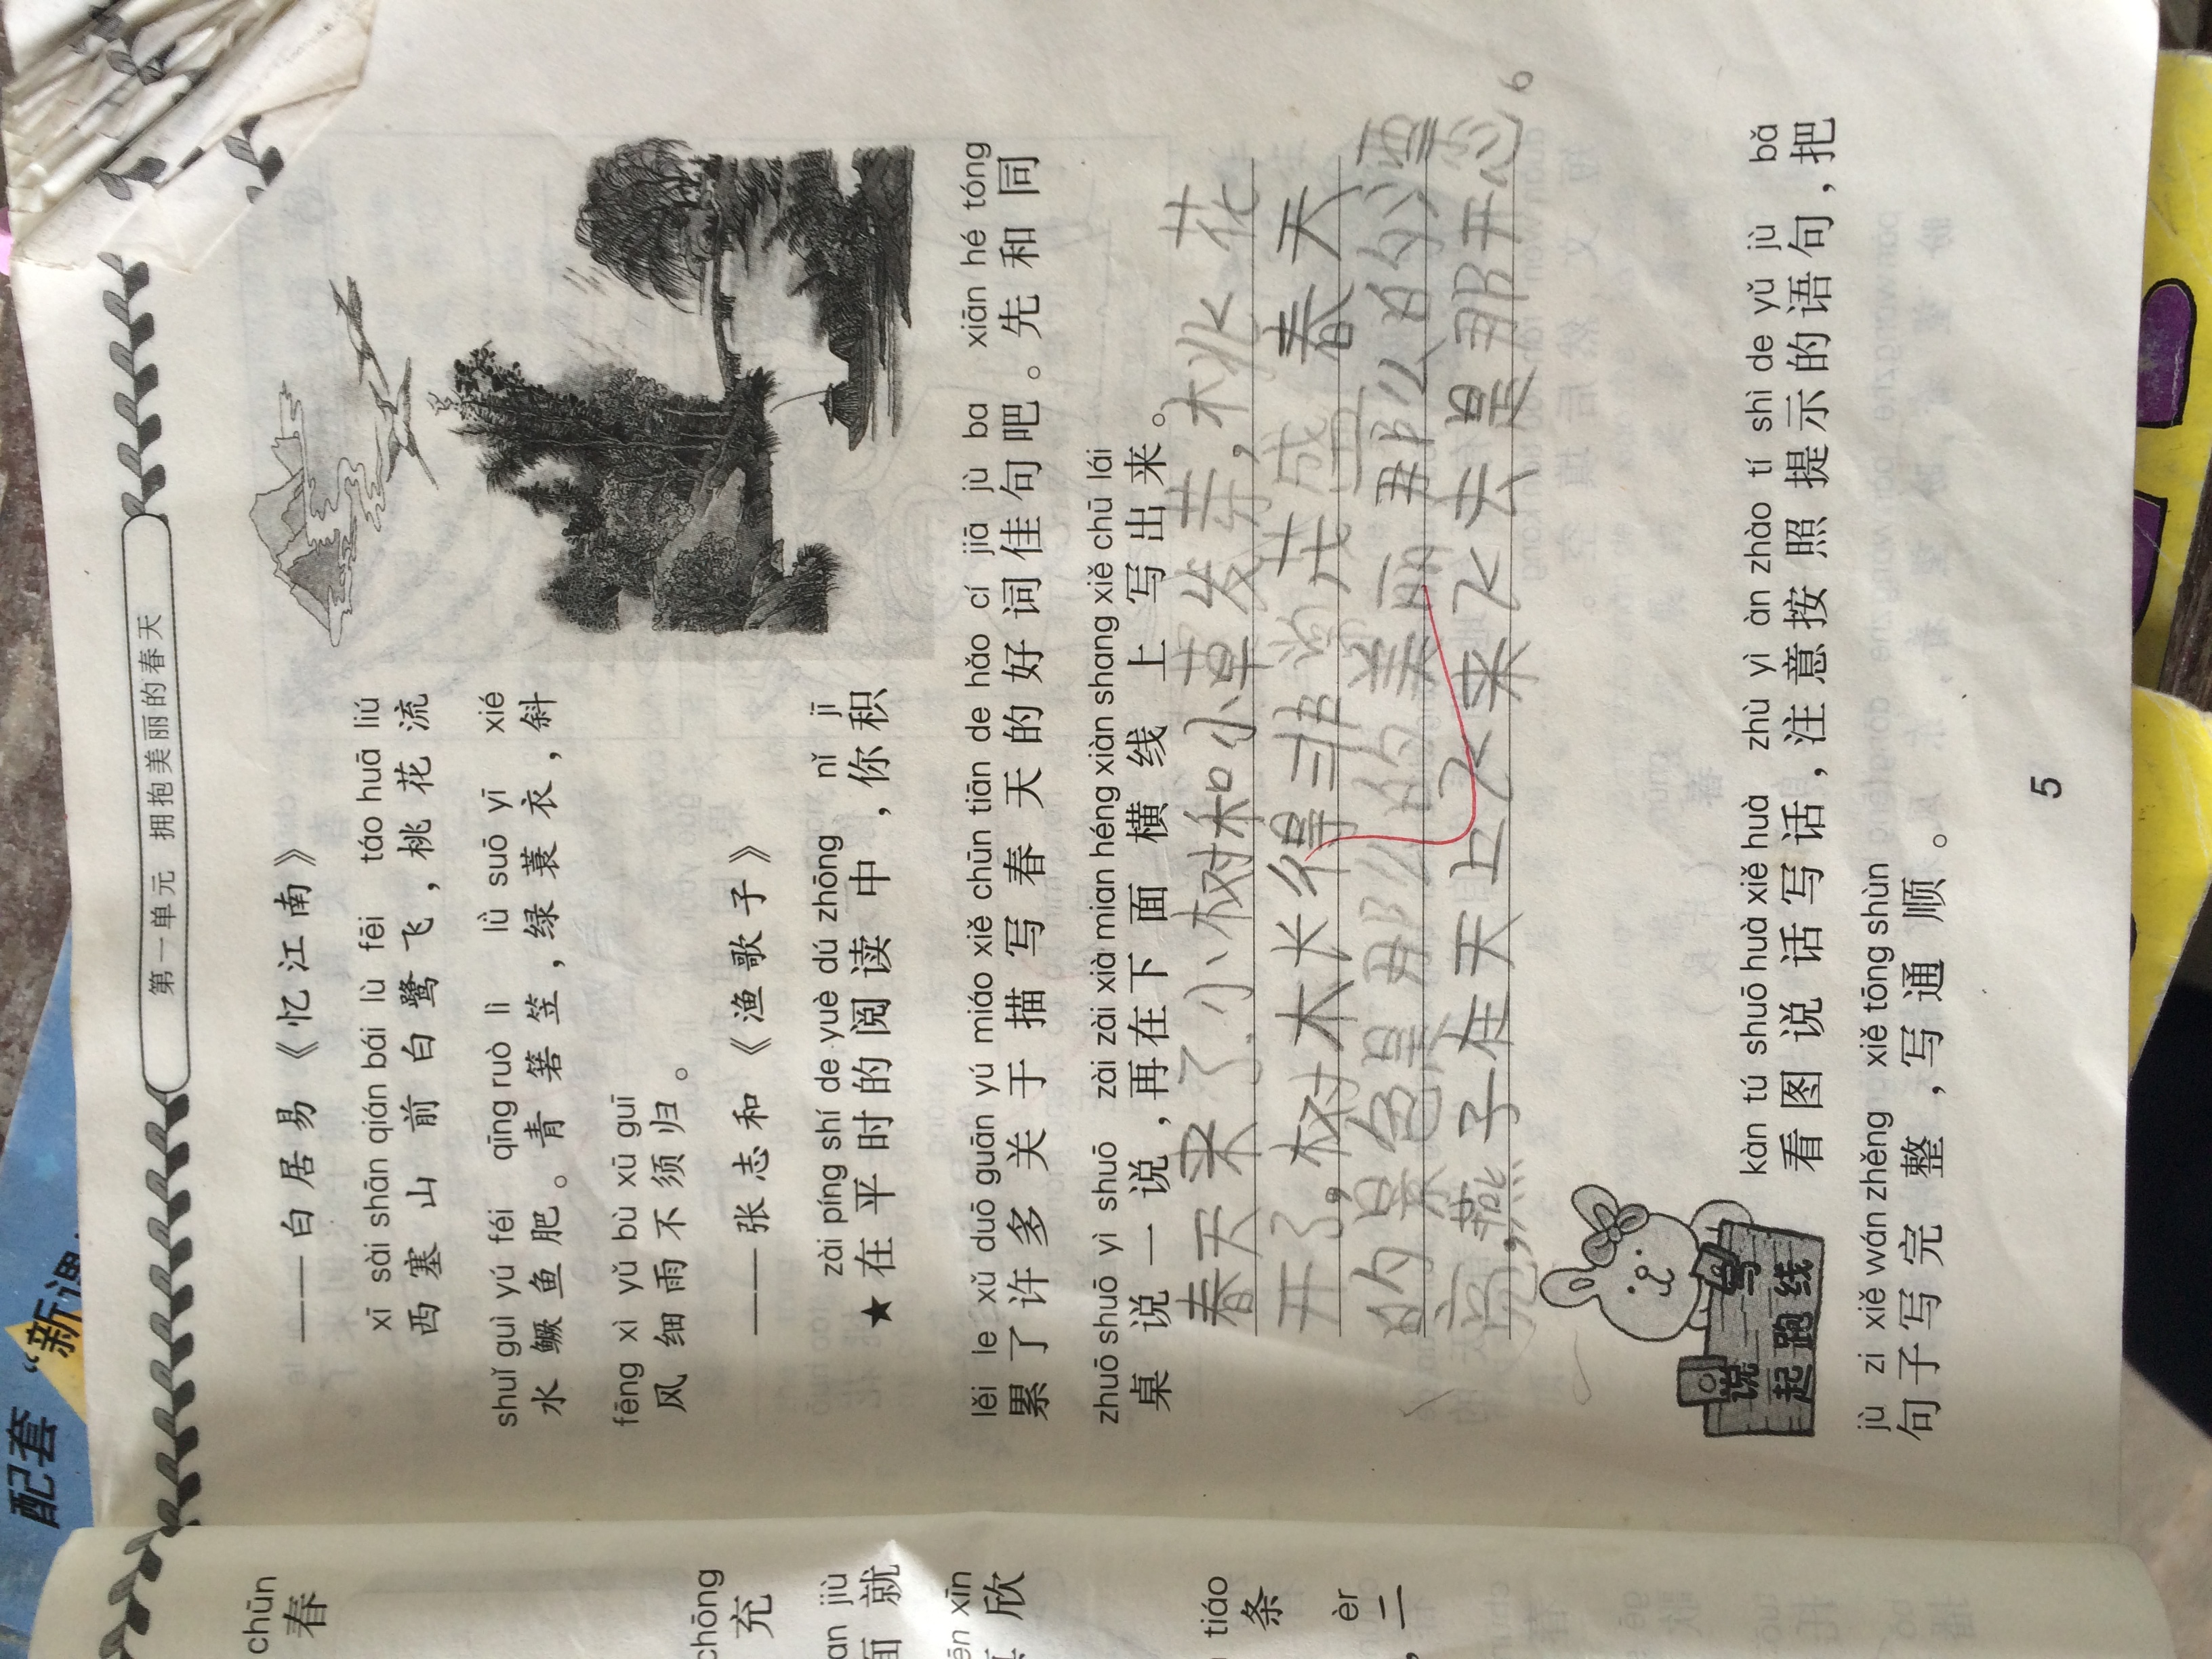 配套
“新课
第一单元 拥抱美丽的春天
——白居易《忆江南》
xī sài shān qián bái lù fēi táo huā liú
西塞山前白鹭飞，桃花流
shuǐ guì yú féi qīng ruò lì lǜ suō yī xié
水鳜鱼肥。青箬笠，绿蓑衣，斜
fēng xì yǔ bù xū guī
风细雨不须归。
——张志和《渔歌子》
zài píng shí de yuè dú zhōng nǐ jī
★在平时的阅读中，你积
lěi le xǔ duō guān yú miáo xiě chūn tiān de hǎo cí jiā jù ba xiān hé tóng
累了许多关于描写春天的好词佳句吧。先和同
zhuō shuō yì shuō zài zài xià mian héng xiàn shang xiě chū lái
桌说一说，再在下面横线上写出来。
春天来了，小树和小草发芽，桃花
开了，树木长得非常茂盛春天
的景色是那么的美丽那么的漂
亮，燕子在天上飞来飞去是那开心
说写
起跑线
kàn tú shuō huà xiě huà zhù yì àn zhào tí shì de yǔ jù bǎ
看图说话写话，注意按照提示的语句，把
jù zi xiě wán zhěng xiě tōng shùn
句子写完整，写通顺。
5
chūn
春
chōng
充
jiù
面就
xīn
欣
tiáo
条
èr
，二